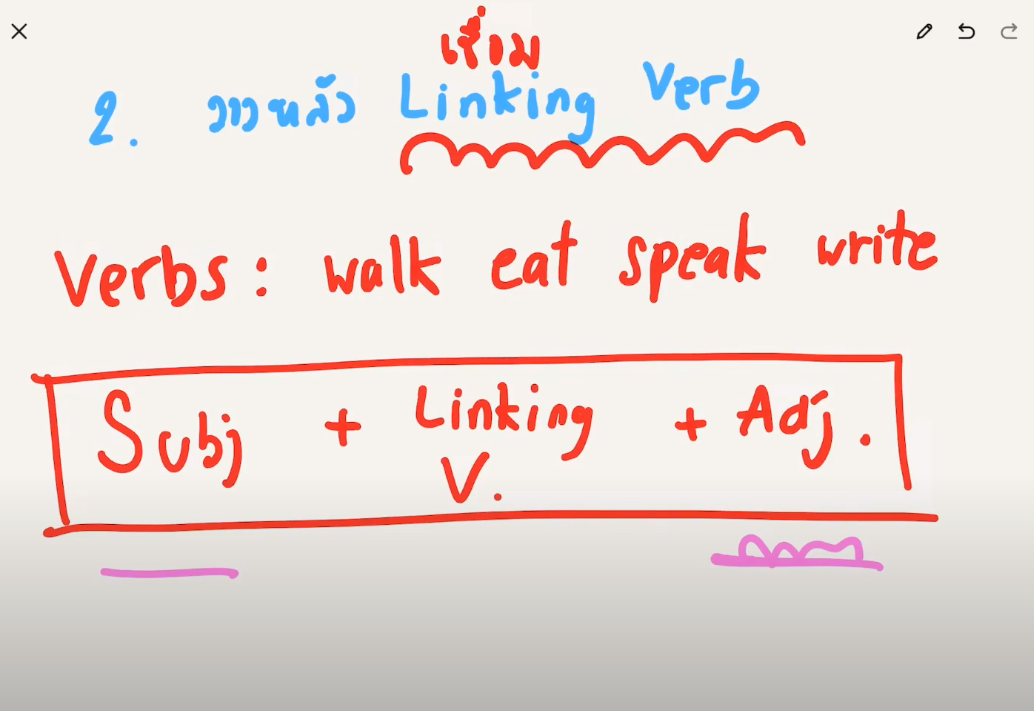 เชื่อม
2. วางหลัง Linking Verb
Verbs: walk eat speak write
Subj + Linking V. + Adj.